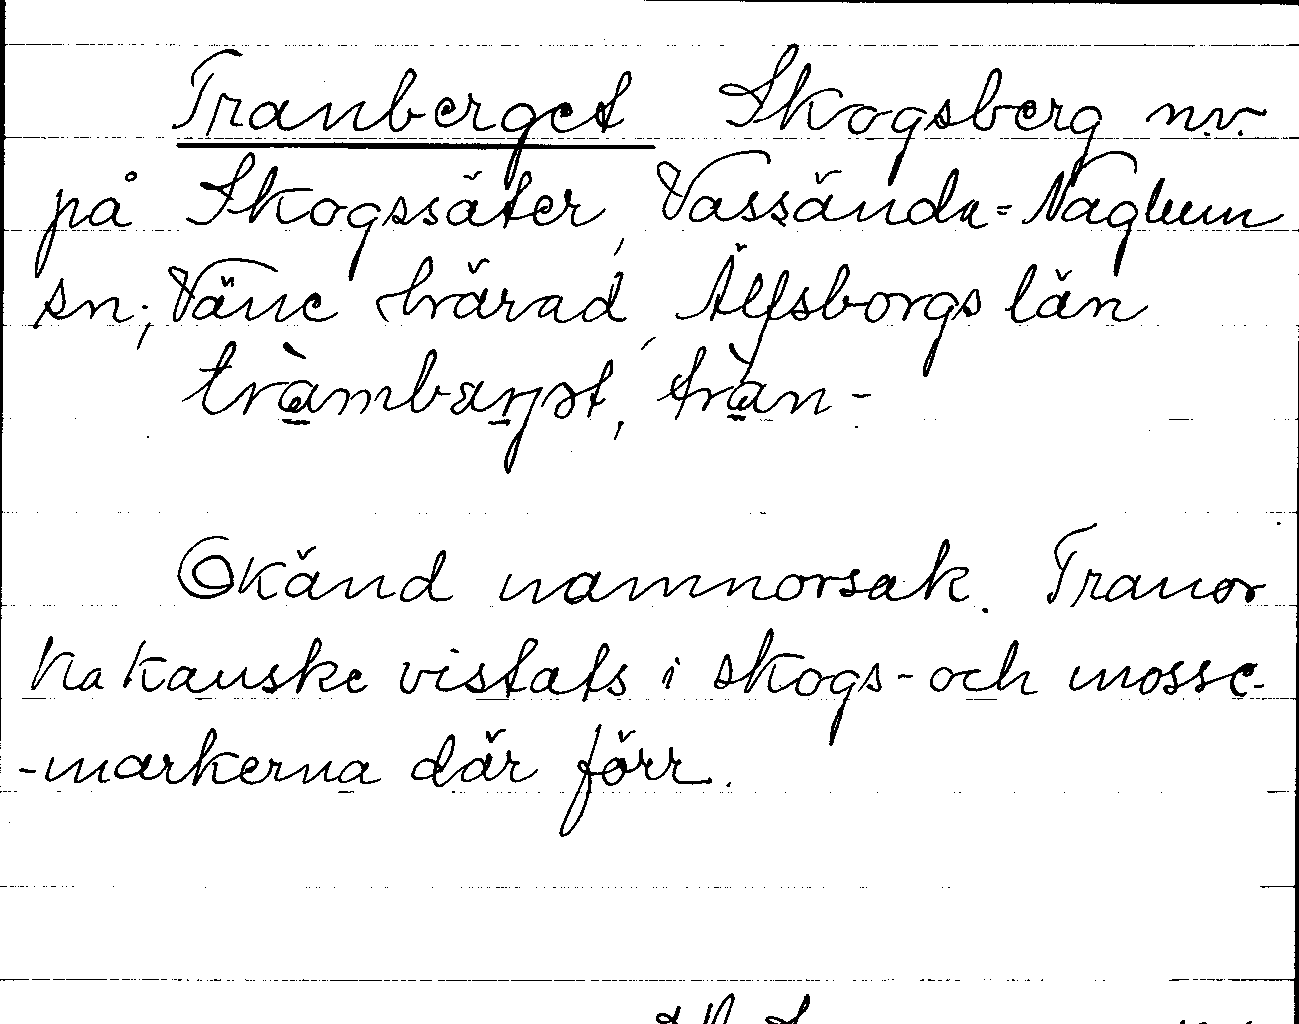 Tranberget Skogsberg n.v.
på Skogssäter, Vassända=Naglum
sn; Väne härad, Älfsborgs län
tràmbærjət, tràn-
Okänd namnorsak. Tranor
ha kanske vistats i skogs- och mosse-
-markerna där förr.